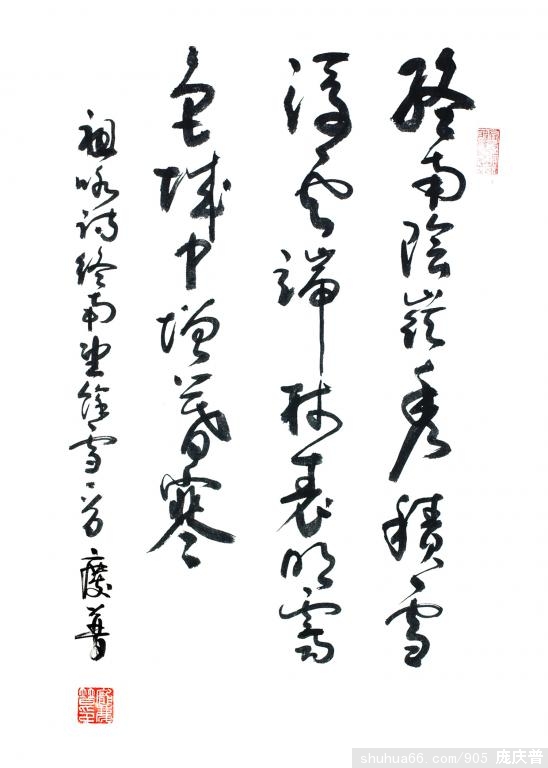 終南陰嶺秀積雪
浮云端林表明霽
色城中增暮寒
祖咏詩終南望餘雪一首 慶普
shuhua66.com/905 庞庆普